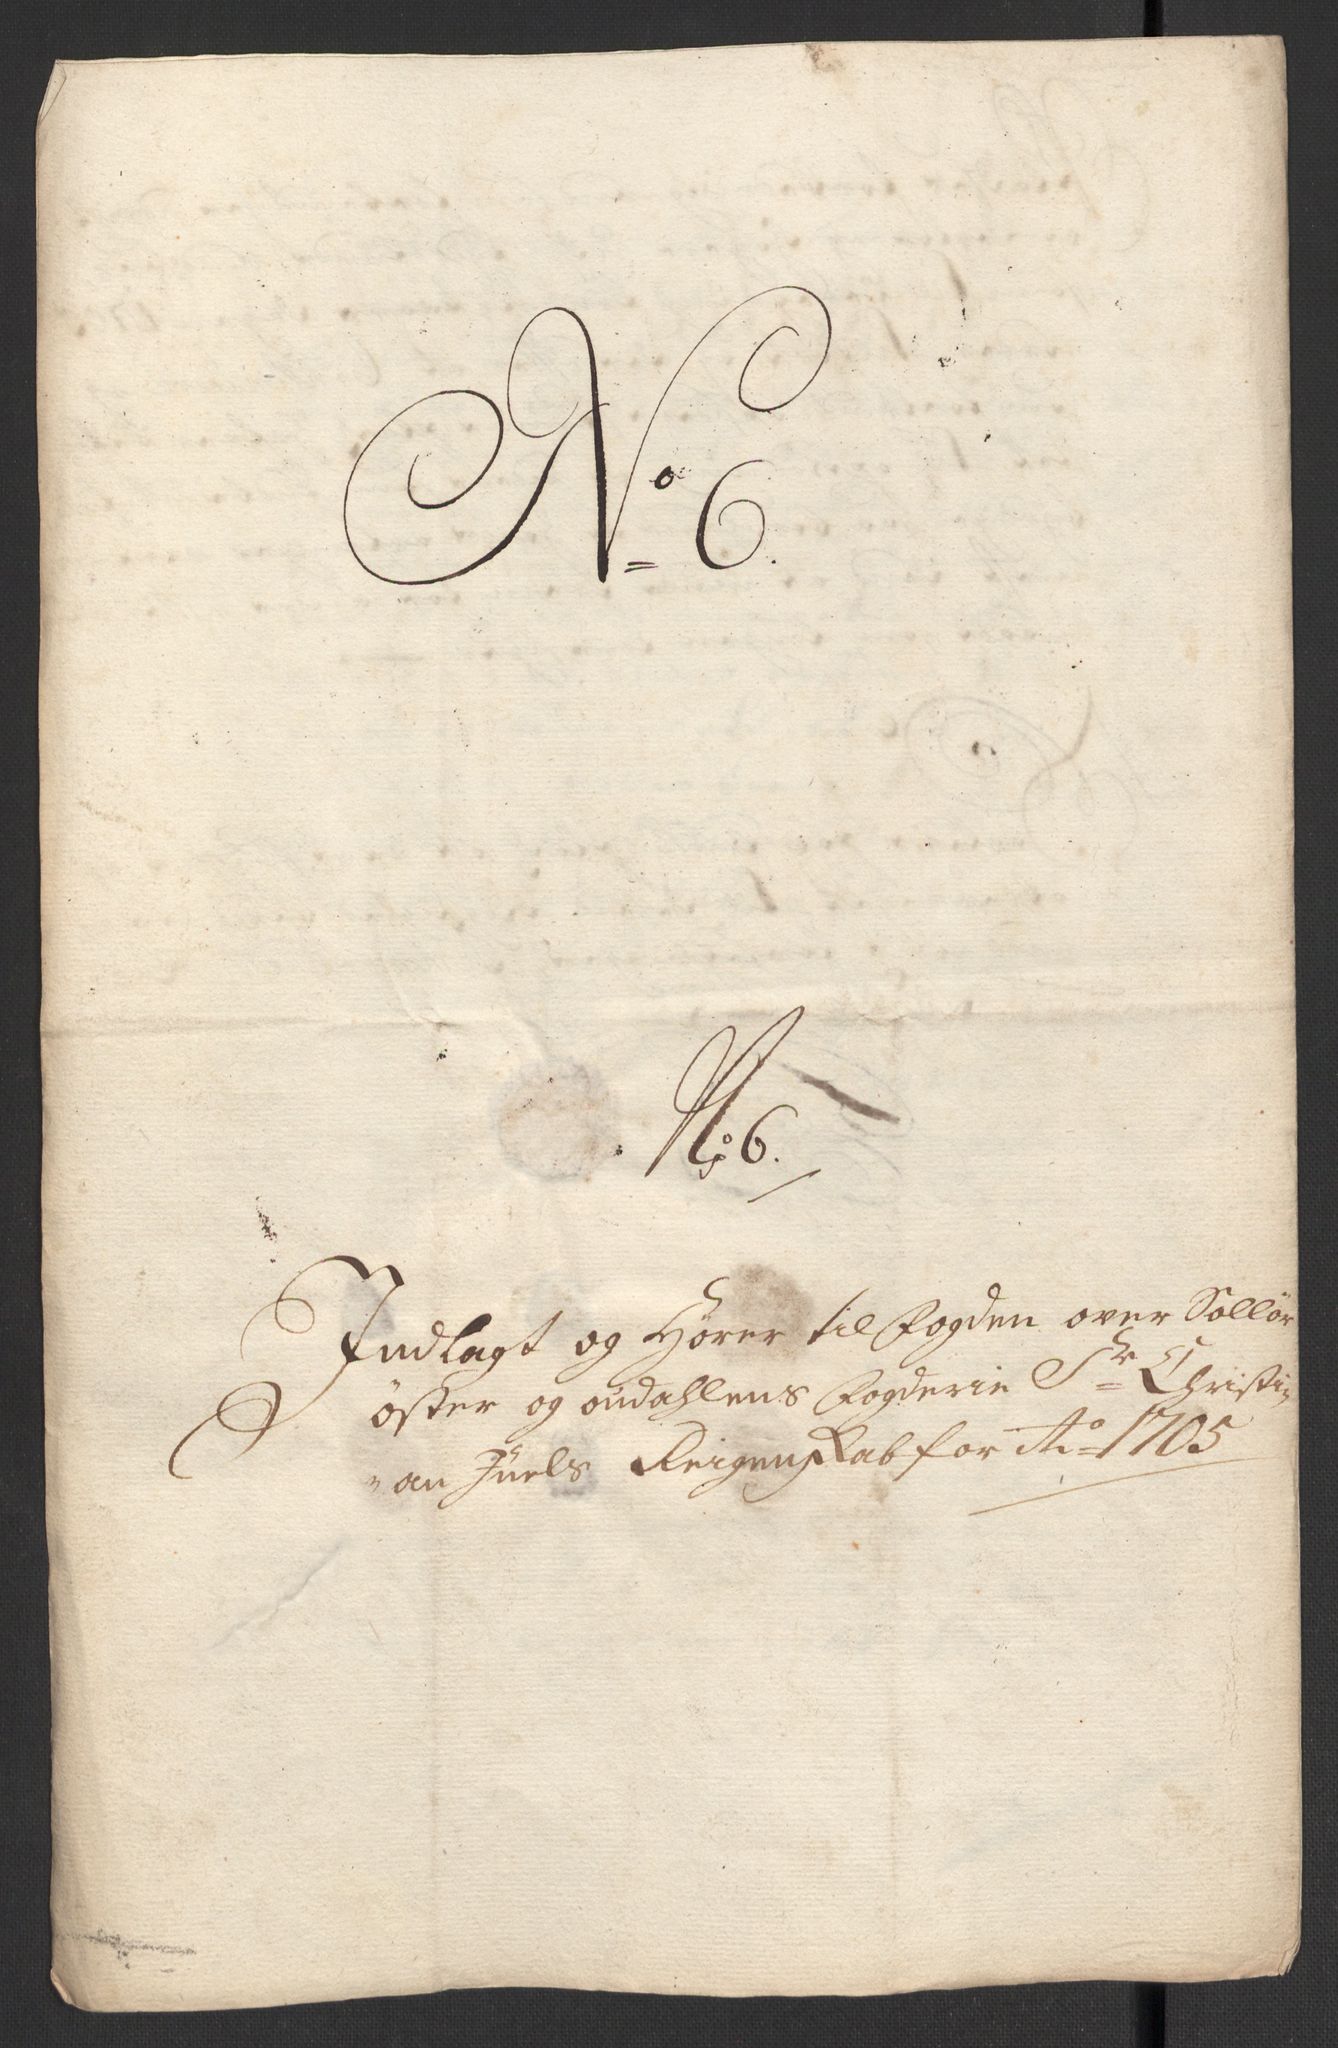 No 6.
No 6.
Indlagt og Hörer til Fogden over Sollör
öster og oudahlens Fogderie Sr Christi
an Juels Reigenskab for Ao 1705